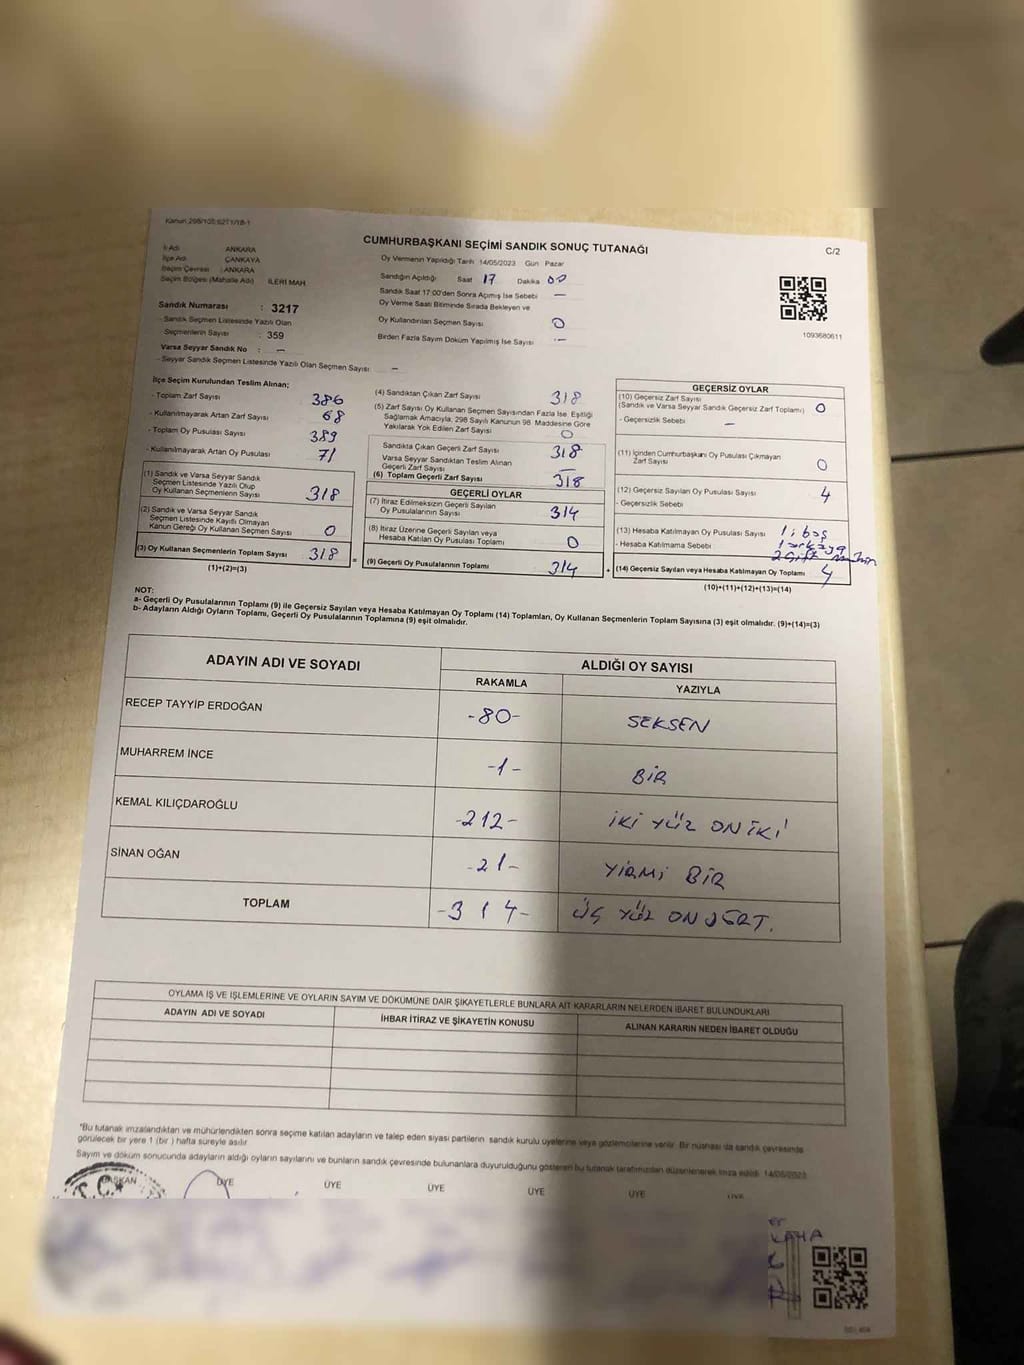 Kanun 298/105:6271/18-1
CUMHURBAŞKANI SEÇİMİ SANDIK SONUÇ TUTANAĞI
C/2
İl Adı ANKARA
İlçe Adı ÇANKAYA
Seçim Çevresi : ANKARA
Seçim Bölgesi (Mahalle Adı) İLERİ MAH
Sandık Numarası : 3217
- Sandık Seçmen Listesinde Yazılı Olan
Seçmenlerin Sayısı : 359
Varsa Seyyar Sandık No : —
- Seyyar Sandık Seçmen Listesinde Yazılı Olan Seçmen Sayısı : —
Oy Vermenin Yapıldığı Tarih 14/05/2023 Gün Pazar
Sandığın Açıldığı Saat 17 Dakika 00
Sandık Saat 17:00'den Sonra Açımış İse Sebebi —
Oy Verme Saati Bitiminde Sırada Bekleyen ve
Oy Kullandırılan Seçmen Sayısı 0
Birden Fazla Sayım Döküm Yapılmış İse Sayısı —
1093680611
İlçe Seçim Kurulundan Teslim Alınan;
- Toplam Zarf Sayısı 386
- Kullanılmayarak Artan Zarf Sayısı 68
- Toplam Oy Pusulası Sayısı 389
- Kullanılmayarak Artan Oy Pusulası 71
(1) Sandık ve Varsa Seyyar Sandık
Seçmen Listesinde Yazılı Olup
Oy Kullanan Seçmenlerin Sayısı 318
(2) Sandık ve Varsa Seyyar Sandık
Seçmen Listesinde Kayıtlı Olmayan
Kanun Gereği Oy Kullanan Seçmen Sayısı 0
(3) Oy Kullanan Seçmenlerin Toplam Sayısı 318
(1)+(2)=(3)
(4) Sandıktan Çıkan Zarf Sayısı 318
(5) Zarf Sayısı Oy Kullanan Seçmen Sayısından Fazla İse, Eşitliği
Sağlamak Amacıyla, 298 Sayılı Kanunun 98. Maddesine Göre
Yakılarak Yok Edilen Zarf Sayısı 0
Sandıkta Çıkan Geçerli Zarf Sayısı 318
Varsa Seyyar Sandıktan Teslim Alınan
Geçerli Zarf Sayısı —
(6) Toplam Geçerli Zarf Sayısı 318
GEÇERLİ OYLAR
(7) İtiraz Edilmeksizin Geçerli Sayılan
Oy Pusulalarının Sayısı 314
(8) İtiraz Üzerine Geçerli Sayılan veya
Hesaba Katılan Oy Pusulası Toplamı 0
= (9) Geçerli Oy Pusulalarının Toplamı 314
GEÇERSİZ OYLAR
(10) Geçersiz Zarf Sayısı
(Sandık ve Varsa Seyyar Sandık Geçersiz Zarf Toplamı) 0
- Geçersizlik Sebebi —
(11) İçinden Cumhurbaşkanı Oy Pusulası Çıkmayan
Zarf Sayısı 0
(12) Geçersiz Sayılan Oy Pusulası Sayısı 4
- Geçersizlik Sebebi
(13) Hesaba Katılmayan Oy Pusulası Sayısı
- Hesaba Katılmama Sebebi
+ (14) Geçersiz Sayılan veya Hesaba Katılmayan Oy Toplamı 4
(10)+(11)+(12)+(13)=(14)
NOT:
a- Geçerli Oy Pusulalarının Toplamı (9) ile Geçersiz Sayılan veya Hesaba Katılmayan Oy Toplamı (14) Toplamları, Oy Kullanan Seçmenlerin Toplam Sayısına (3) eşit olmalıdır. (9)+(14)=(3)
b- Adayların Aldığı Oyların Toplamı, Geçerli Oy Pusulalarının Toplamına (9) eşit olmalıdır.
ADAYIN ADI VE SOYADI
ALDIĞI OY SAYISI
RAKAMLA YAZIYLA
RECEP TAYYİP ERDOĞAN -80- SEKSEN
MUHARREM İNCE -1- BİR
KEMAL KILIÇDAROĞLU -212- İKİ YÜZ ON İKİ
SİNAN OĞAN -21- YİRMİ BİR
TOPLAM -314- ÜÇ YÜZ ON DÖRT.
OYLAMA İŞ VE İŞLEMLERİNE VE OYLARIN SAYIM VE DÖKÜMÜNE DAİR ŞİKAYETLERLE BUNLARA AİT KARARLARIN NELERDEN İBARET BULUNDUKLARI
ADAYIN ADI VE SOYADI İHBAR İTİRAZ VE ŞİKAYETİN KONUSU ALINAN KARARIN NEDEN İBARET OLDUĞU
*Bu tutanak imzalandıktan ve mühürlendikten sonra seçime katılan adayların ve talep eden siyasi partilerin sandık kurulu üyelerine veya gözlemcilerine verilir. Bir nüshası da sandık çevresinde
görülecek bir yere 1 (bir ) hafta süreyle asılır.
Sayım ve döküm sonucunda adayların aldığı oyların sayılarını ve bunların sandık çevresinde bulunanlara duyurulduğunu gösteren bu tutanak tarafımızdan düzenlenerek imza edildi. 14/05/2023
BAŞKAN ÜYE ÜYE ÜYE ÜYE ÜYE ÜYE